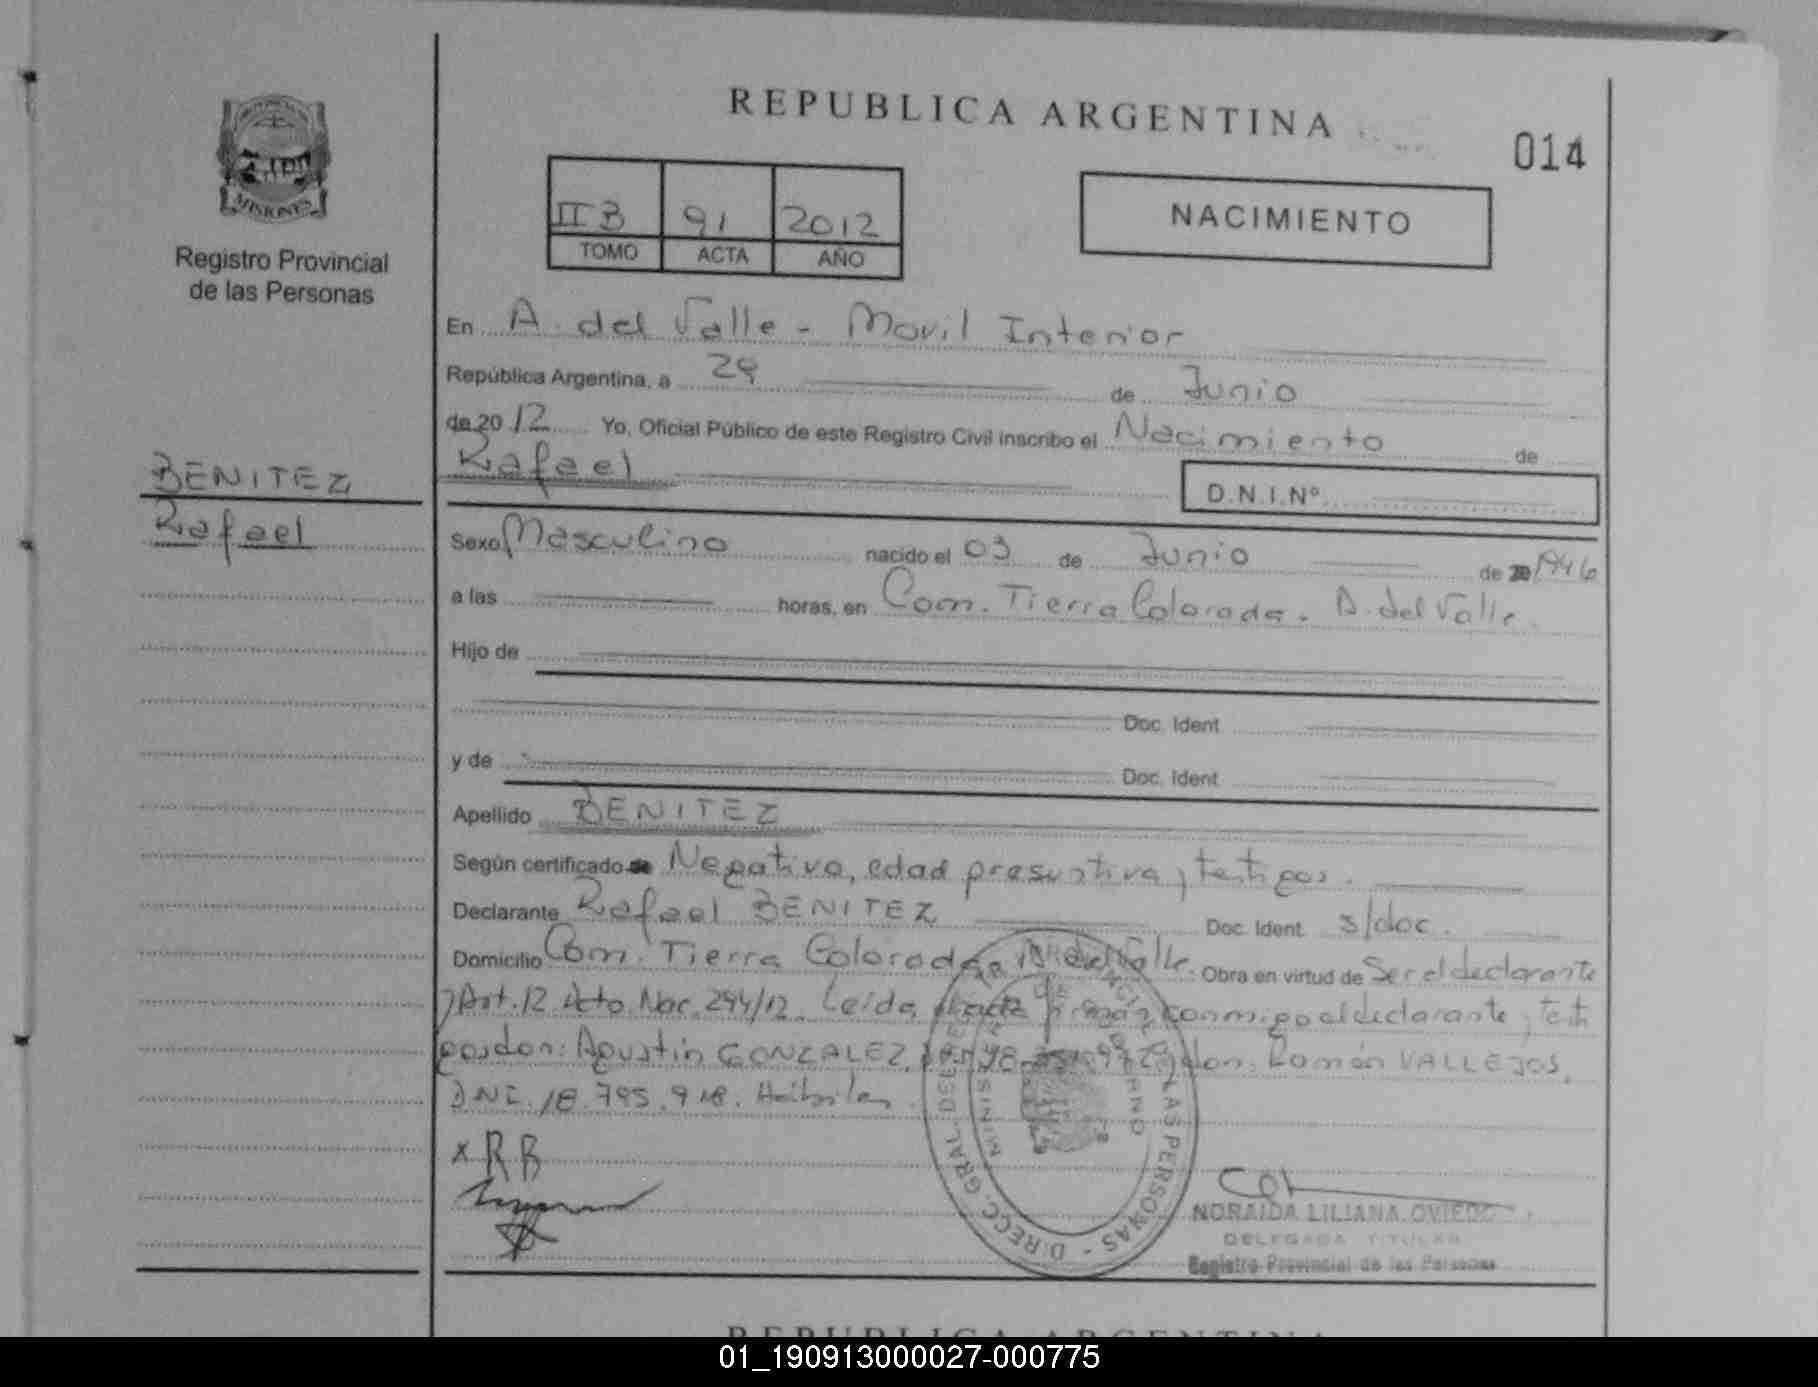 REPUBLICA ARGENTINA
014
MISIONES
Registro Provincial
de las Personas
II B 91 2012
TOMO ACTA AÑO
NACIMIENTO
En A. del Valle - Movil Interior
República Argentina, a 29 de Junio
de 2012 Yo, Oficial Público de este Registro Civil inscribo el Nacimiento de
Rafael
D.N.I.Nº
BENITEZ
Rafael
Sexo Masculino nacido el 03 de Junio de 20 1946
a las horas, en Com. Tierra Colorada. A. del Valle.
Hijo de
Doc. Ident
y de Doc. Ident
Apellido BENITEZ
Según certificado de Negativo, edad presuntiva y testigos.
Declarante Rafael BENITEZ Doc. Ident s/doc.
Domicilio Com. Tierra Colorada A. del Valle. Obra en virtud de Ser el declarante
y Art. 12 Acto. Nac. 294/12. Leída el acta firman conmigo el declarante y testi
gos don: Agustín GONZALEZ, don: Ramón VALLEJOS,
DNI. 18.795.918. Hábiles.
x R B
DIRECC. GRAL. DEL REG. PROVINCIAL DE LAS PERSONAS
NORAIDA LILIANA OVIEDO
DELEGADA TITULAR
Registro Provincial de las Personas
REPUBLICA ARGENTINA
01_190913000027-000775